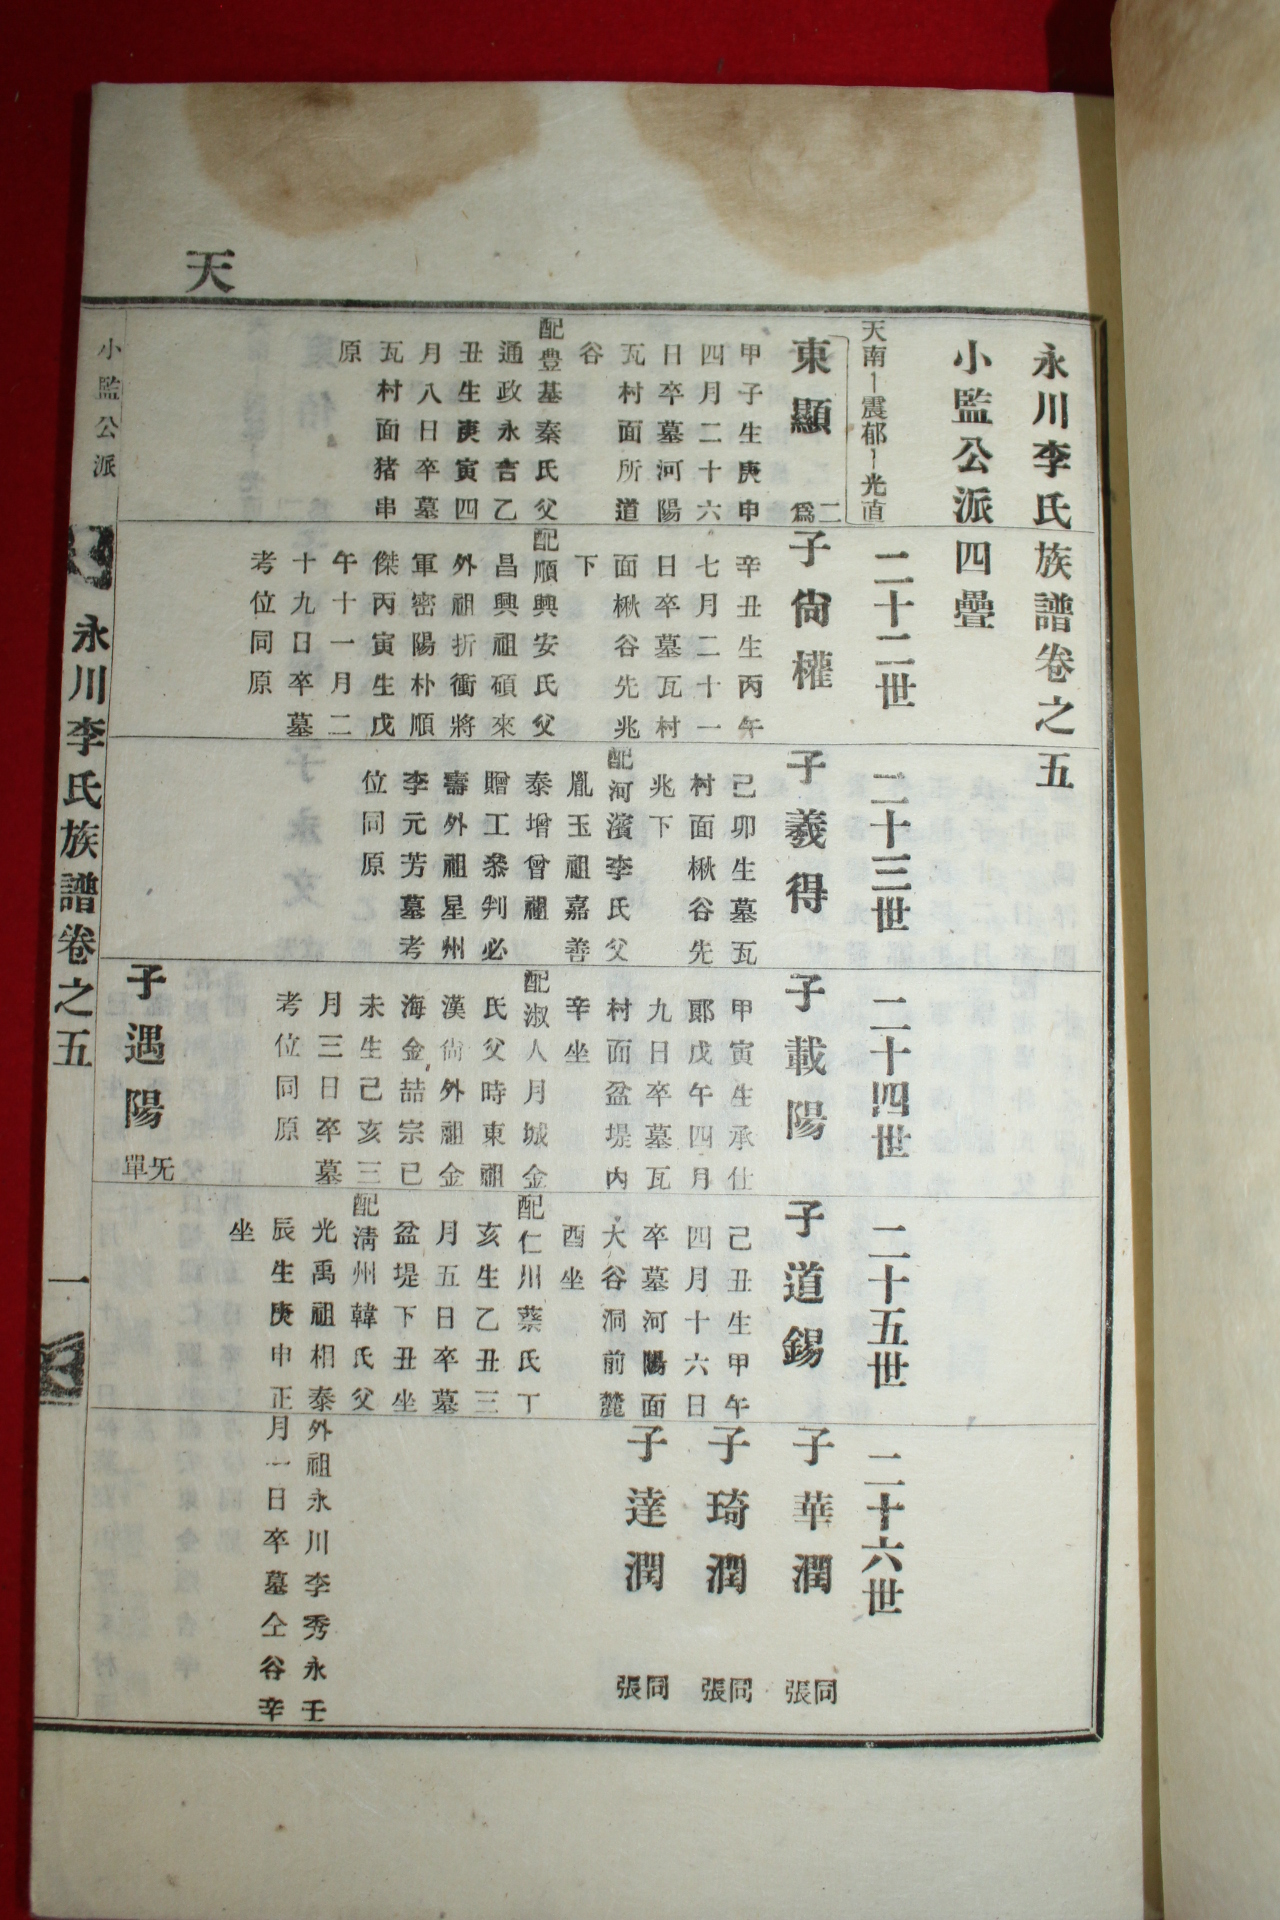 永川李氏族譜卷之五
小監公派四疊
天南ー震郁ー光直
東顯
二
爲
甲子生庚申
四月二十六
日卒墓河陽
瓦村面所道
谷
配豊基秦氏父
通政永吉乙
丑生庚寅四
月八日卒墓
瓦村面猪串
原
二十二世
子尙權
辛丑生丙午
七月二十一
日卒墓瓦村
面楸谷先兆
下
配順興安氏父
昌興祖碩來
外祖折衝將
軍密陽朴順
傑丙寅生戊
午十一月二
十九日卒墓
考位同原
二十三世
子羲得
己卯生墓瓦
村面楸谷先
兆下
配河濱李氏父
胤玉祖嘉善
泰增曾祖
贈工叅判必
壽外祖星州
李元芳墓考
位同原
二十四世
子載陽
甲寅生承仕
郞戊午四月
九日卒墓瓦
村面盆堤內
辛坐
配淑人月城金
氏父時東祖
漢尙外祖金
海金喆宗已
未生己亥三
月三日卒墓
考位同原
子遇陽
旡
單
二十五世
子道錫
己丑生甲午
四月十六日
卒墓河陽面
大谷洞前麓
酉坐
配仁川蔡氏丁
亥生乙丑三
月五日卒墓
盆堤下丑坐
配淸州韓氏父
光禹祖相泰
辰生庚申正
坐
二十六世
子華潤
同
張
子琦潤
同
張
子達潤
同
張
外祖永川李秀永壬
月一日卒墓仝谷辛
天
小監公派
永川李氏族譜卷之五
一